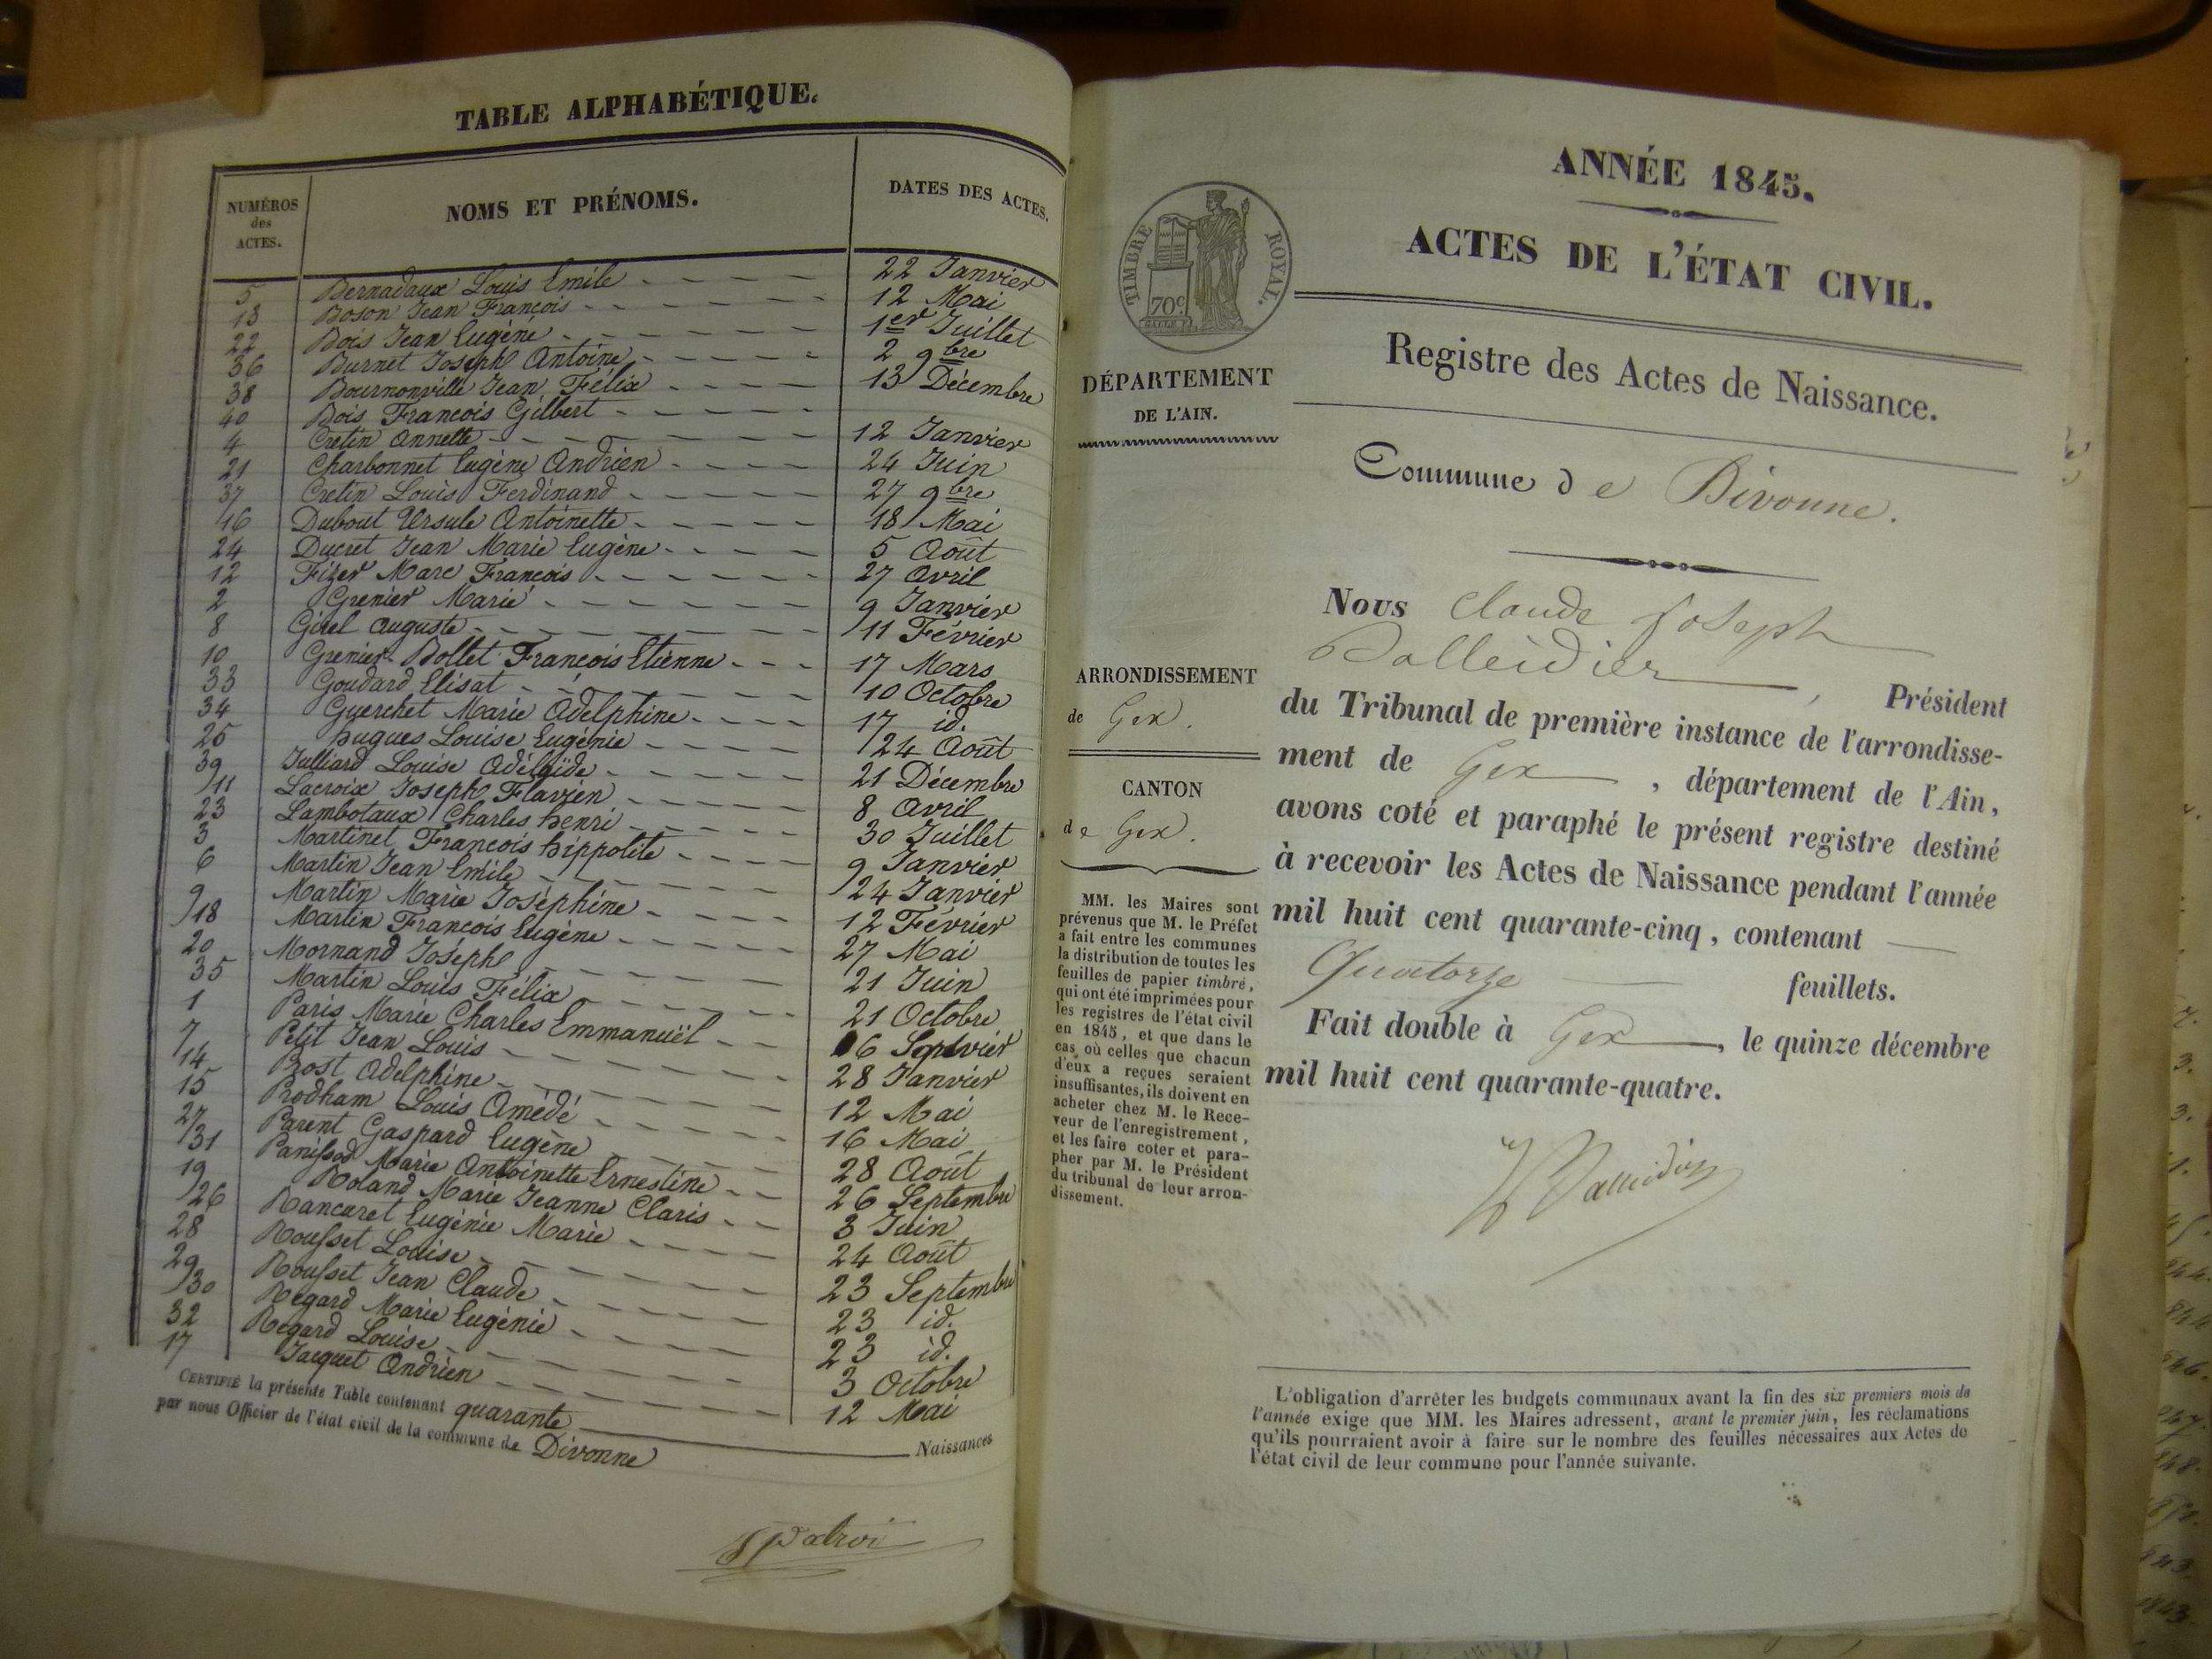 TABLE ALPHABÉTIQUE.
NUMÉROS des ACTES. NOMS ET PRÉNOMS. DATES DES ACTES.
5 Bernadaux Louis Emile 22 Janvier
13 Boson Jean François 12 Mai
22 Bois Jean Eugène 1er Juillet
36 Burnet Joseph Antoine 2 9bre
38 Bournonville Jean Félix 13 Décembre
40 Bois François Gilbert
4 Cretin Annette 12 Janvier
21 Charbonnet Eugène Andrien 24 Juin
37 Cretin Louis Ferdinand 27 9bre
16 Dubout Ursule Antoinette 18 Mai
24 Ducret Jean Marie Eugène 5 Août
12 Fizer Marc François 27 Avril
2 Grenier Marie 9 Janvier
8 Girel Auguste 11 Février
10 Grenier-Bollet François Etienne 17 Mars
33 Goudard Elisat 10 Octobre
34 Guerchet Marie Adelphine 17 id.
25 hugues Louise Eugénie 24 Août
39 Julliard Louise Adélaïde 21 Décembre
11 Lacroix Joseph Flavien 8 Avril
23 Lambotaux Charles henri 30 Juillet
3 Martinet François hippolite 9 Janvier
6 Martin Jean Emile 24 Janvier
9 Martin Marie Joséphine 12 Février
18 Martin François Eugène 27 Mai
20 Mornand Joseph 21 Juin
35 Martin Louis Félix 21 Octobre
1 Paris Marie Charles Emmanuël 6 Janvier
7 Petit Jean Louis 28 Janvier
14 Prost Adelphine 12 Mai
15 Prodham Louis Amédé 16 Mai
27 Parent Gaspard Eugène 28 Août
31 Panissod Marie Antoinette Ernestine 26 Septembre
19 Roland Marie Jeanne Claris 3 Juin
26 Rancaret Eugénie Marie 24 Août
28 Rousset Louise 23 Septembre
29 Rousset Jean Claude 23 id.
30 Regard Marie Eugénie 23 id.
32 Regard Louise 3 Octobre
17 Jacquet Andrien 12 Mai
CERTIFIÉ la présente Table contenant quarante Naissances
par nous Officier de l'état civil de la commune de Divonne
ANNÉE 1845.
ACTES DE L'ÉTAT CIVIL.
TIMBRE ROYAL.
70c
Registre des Actes de Naissance.
DÉPARTEMENT
DE L'AIN.
Commune de Divonne.
Nous Claude Joseph
Balleidier, Président
du Tribunal de première instance de l'arrondisse-
ment de Gex, département de l'Ain,
avons coté et paraphé le présent registre destiné
à recevoir les Actes de Naissance pendant l'année
mil huit cent quarante-cinq, contenant
Quatorze feuillets.
Fait double à Gex, le quinze décembre
mil huit cent quarante-quatre.
ARRONDISSEMENT
de Gex.
CANTON
de Gex.
MM. les Maires sont
prévenus que M. le Préfet
a fait entre les communes
la distribution de toutes les
feuilles de papier timbré,
qui ont été imprimées pour
les registres de l'état civil
en 1845, et que dans le
cas où celles que chacun
d'eux a reçues seraient
insuffisantes, ils doivent en
acheter chez M. le Rece-
veur de l'enregistrement,
et les faire coter et para-
pher par M. le Président
du tribunal de leur arron-
dissement.
L'obligation d'arrêter les budgets communaux avant la fin des six premiers mois de
l'année exige que MM. les Maires adressent, avant le premier juin, les réclamations
qu'ils pourraient avoir à faire sur le nombre des feuilles nécessaires aux Actes de
l'état civil de leur commune pour l'année suivante.